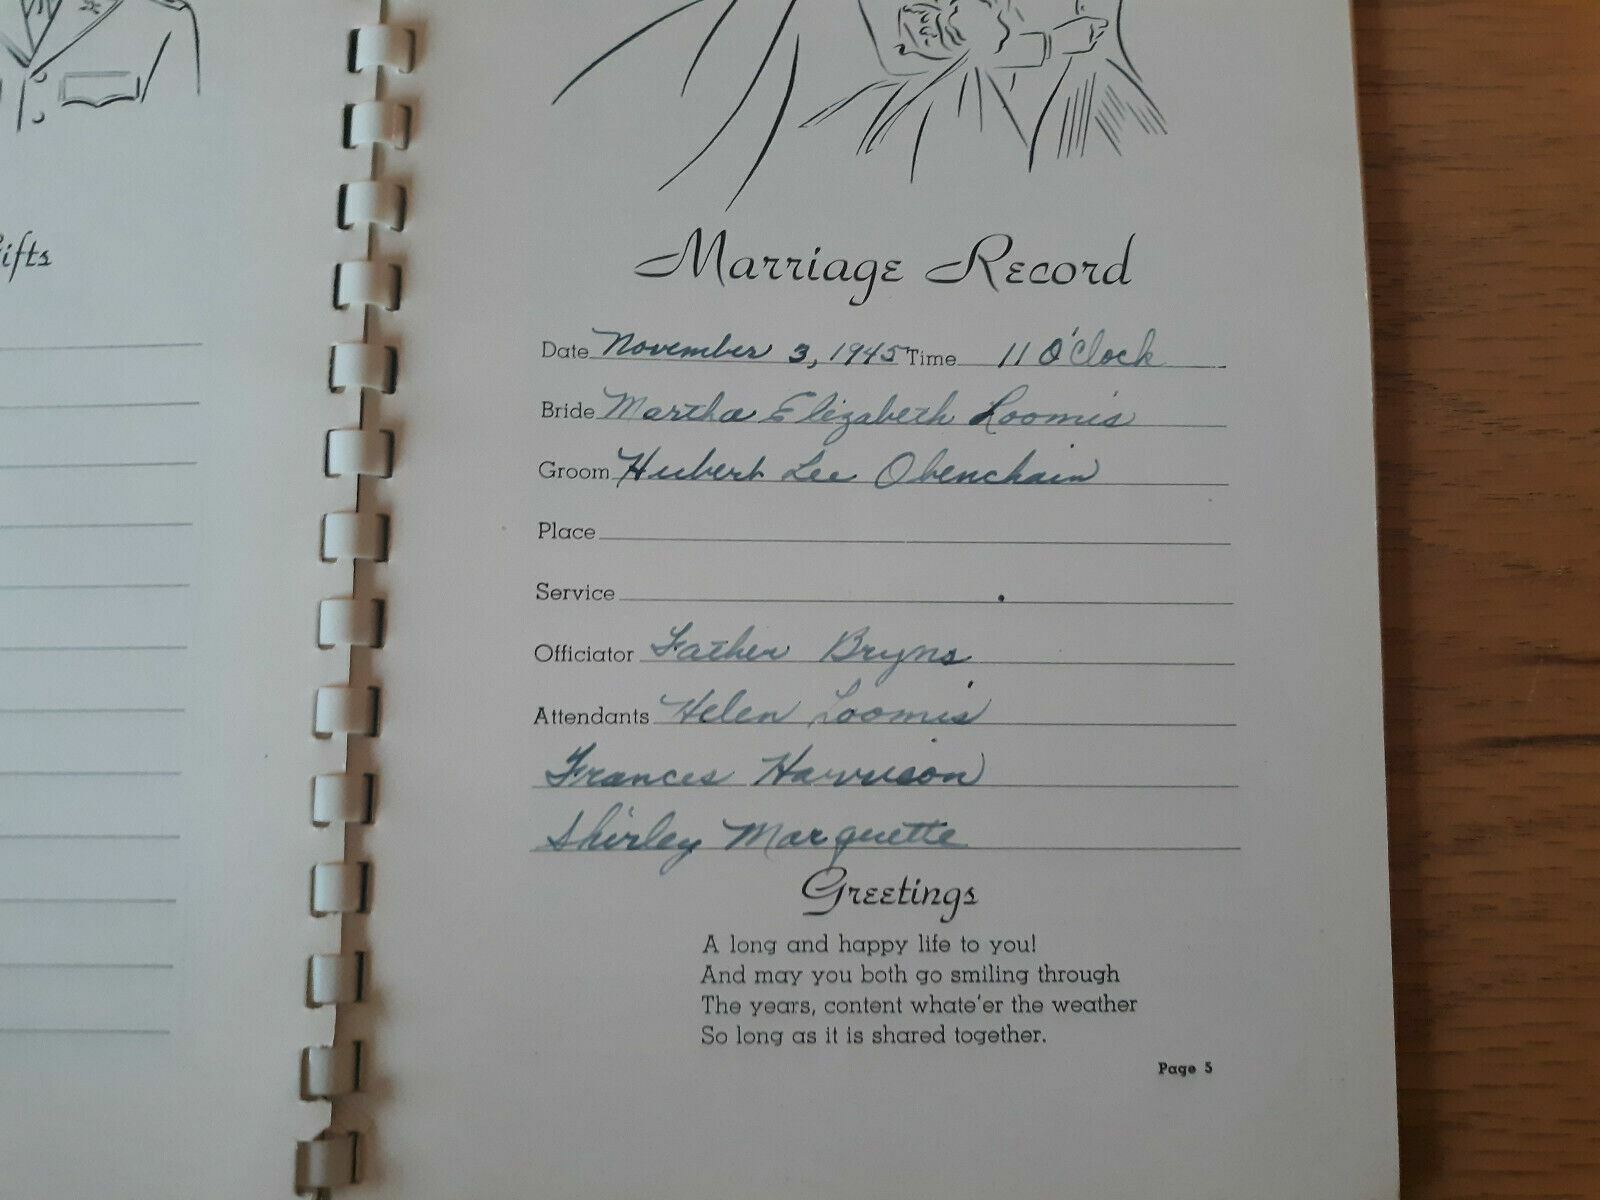 ifts
Marriage Record
Date November 3, 1945 Time 11 O'Clock
Bride Martha Elizabeth Loomis
Groom Hubert Lee Obenchain
Place
Service
Officiator Father Bryns
Attendants Helen Loomis
Frances Harrison
Shirley Marquette
Greetings
A long and happy life to you!
And may you both go smiling through
The years, content whate'er the weather
So long as it is shared together.
Page 5